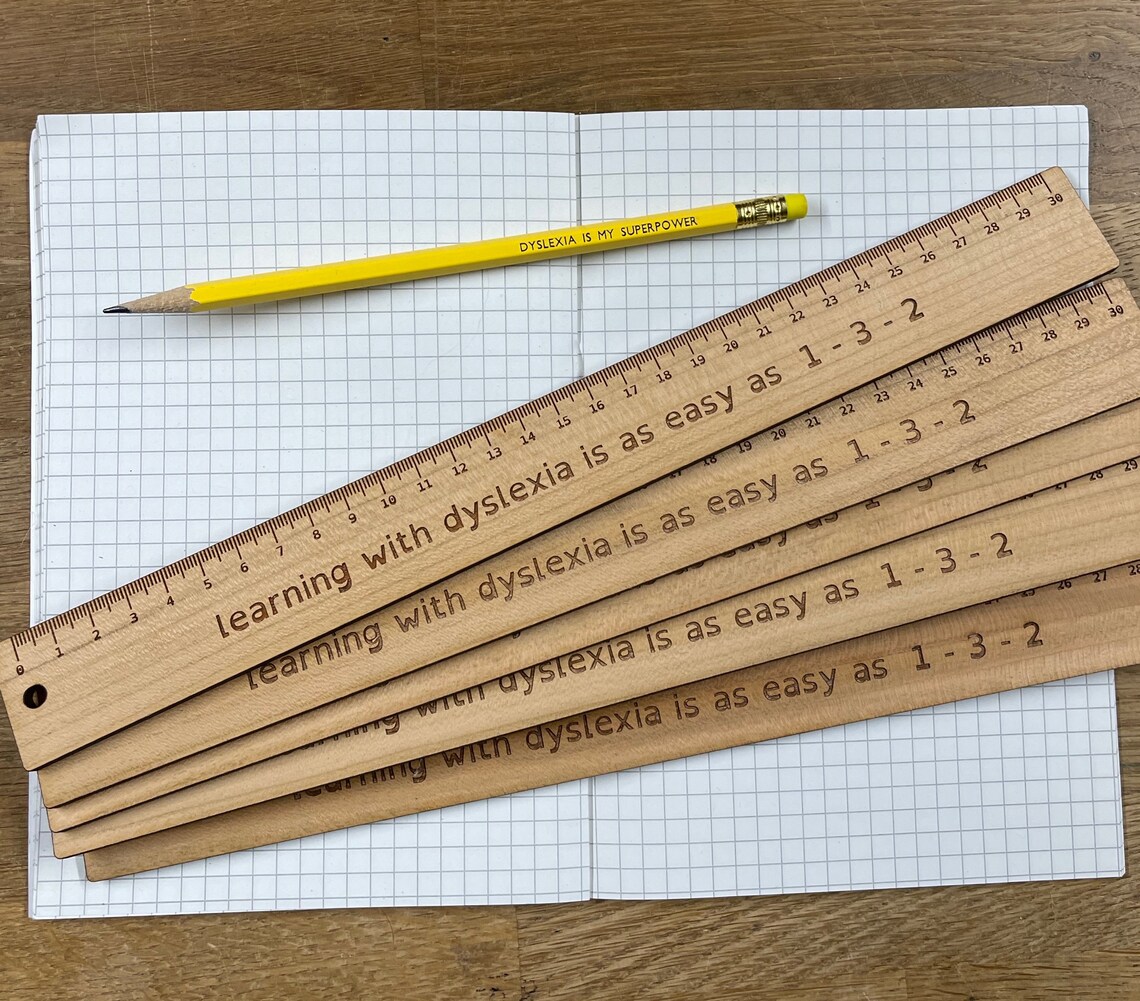 DYSLEXIA IS MY SUPERPOWER
0 1 2 3 4 5 6 7 8 9 10 11 12 13 14 15 16 17 18 19 20 21 22 23 24 25 26 27 28 29 30
learning with dyslexia is as easy as 1 - 3 - 2
18 19 20 21 22 23 24 25 26 27 28 29 30
learning with dyslexia is as easy as 1 - 3 - 2
easy as 1 - 3 - 2
28 29
learning with dyslexia is as easy as 1 - 3 - 2
26 27 28
learning with dyslexia is as easy as 1 - 3 - 2